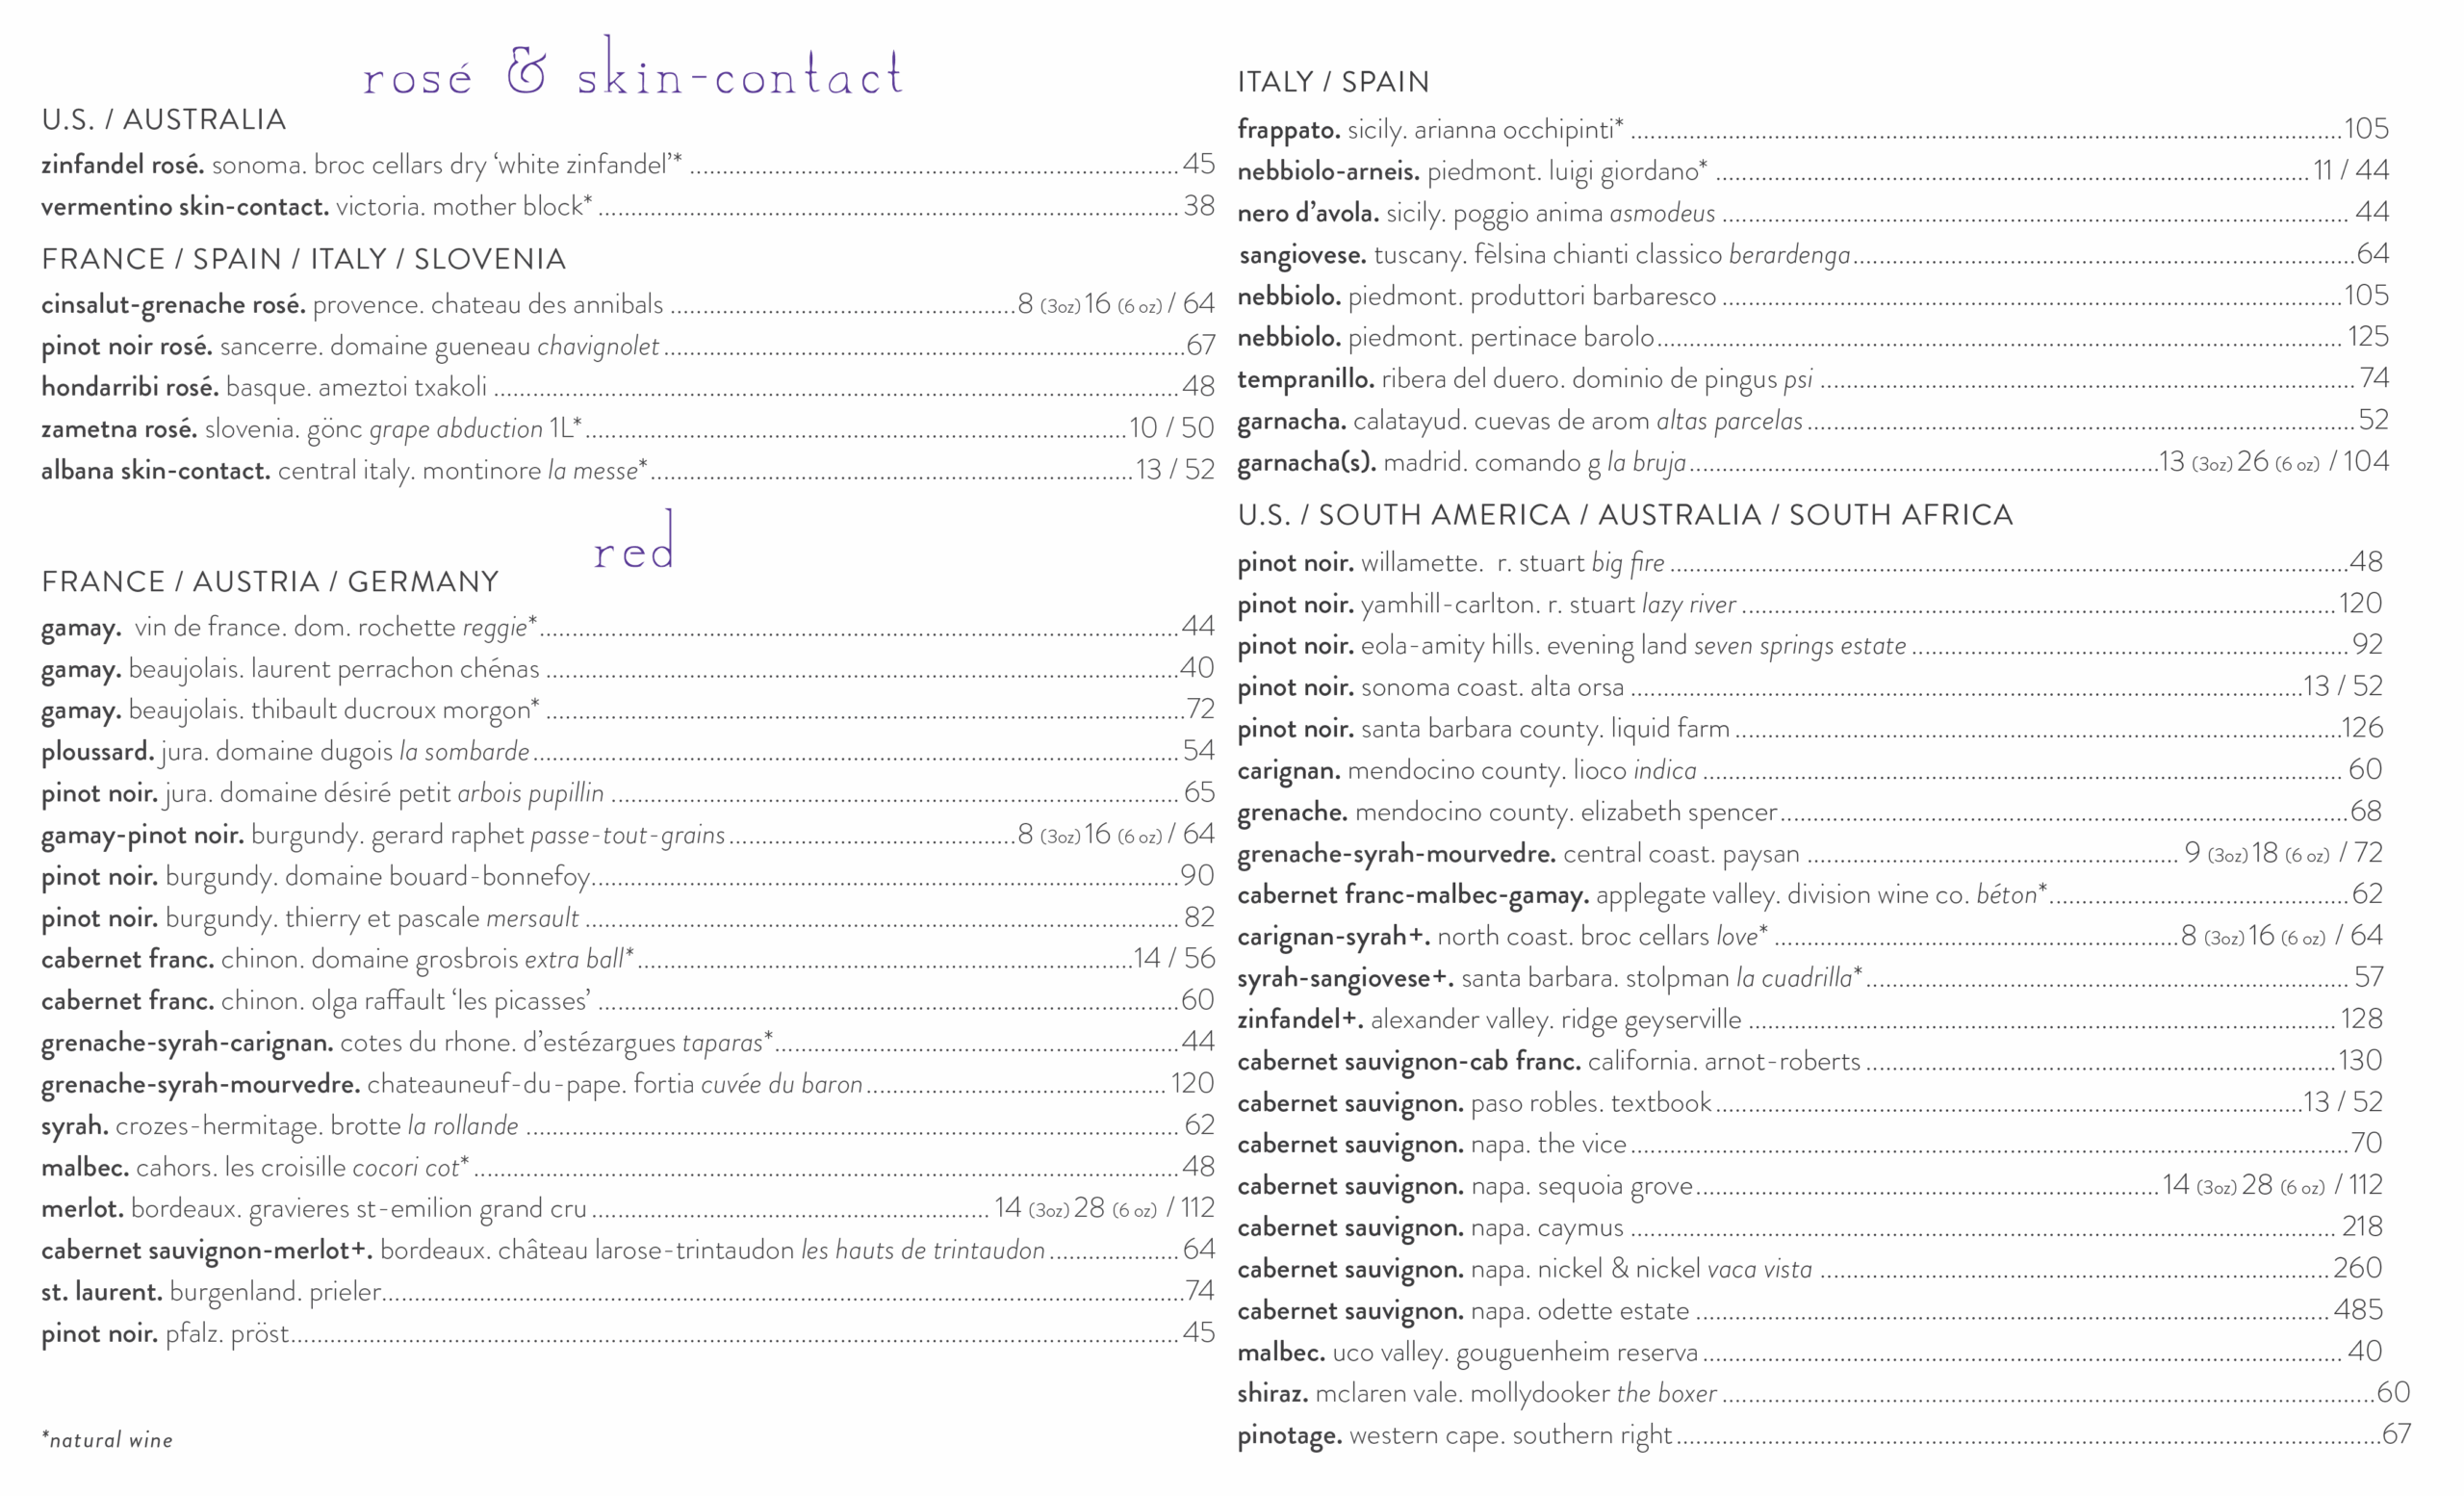 rosé & skin-contact
U.S. / AUSTRALIA
zinfandel rosé. sonoma. broc cellars dry ‘white zinfandel’* 45
vermentino skin-contact. victoria. mother block* 38
FRANCE / SPAIN / ITALY / SLOVENIA
cinsalut-grenache rosé. provence. chateau des annibals 8 (3oz) 16 (6 oz) / 64
pinot noir rosé. sancerre. domaine gueneau chavignolet 67
hondarribi rosé. basque. ameztoi txakoli 48
zametna rosé. slovenia. gönc grape abduction 1L* 10 / 50
albana skin-contact. central italy. montinore la messe* 13 / 52
red
FRANCE / AUSTRIA / GERMANY
gamay. vin de france. dom. rochette reggie* 44
gamay. beaujolais. laurent perrachon chénas 40
gamay. beaujolais. thibault ducroux morgon* 72
ploussard. jura. domaine dugois la sombarde 54
pinot noir. jura. domaine désiré petit arbois pupillin 65
gamay-pinot noir. burgundy. gerard raphet passe-tout-grains 8 (3oz) 16 (6 oz) / 64
pinot noir. burgundy. domaine bouard-bonnefoy 90
pinot noir. burgundy. thierry et pascale mersault 82
cabernet franc. chinon. domaine grosbrois extra ball* 14 / 56
cabernet franc. chinon. olga raffault ‘les picasses’ 60
grenache-syrah-carignan. cotes du rhone. d’estézargues taparas* 44
grenache-syrah-mourvedre. chateauneuf-du-pape. fortia cuvée du baron 120
syrah. crozes-hermitage. brotte la rollande 62
malbec. cahors. les croisille cocori cot* 48
merlot. bordeaux. gravieres st-emilion grand cru 14 (3oz) 28 (6 oz) / 112
cabernet sauvignon-merlot+. bordeaux. château larose-trintaudon les hauts de trintaudon 64
st. laurent. burgenland. prieler 74
pinot noir. pfalz. pröst 45
*natural wine
ITALY / SPAIN
frappato. sicily. arianna occhipinti* 105
nebbiolo-arneis. piedmont. luigi giordano* 11 / 44
nero d’avola. sicily. poggio anima asmodeus 44
sangiovese. tuscany. fèlsina chianti classico berardenga 64
nebbiolo. piedmont. produttori barbaresco 105
nebbiolo. piedmont. pertinace barolo 125
tempranillo. ribera del duero. dominio de pingus psi 74
garnacha. calatayud. cuevas de arom altas parcelas 52
garnacha(s). madrid. comando g la bruja 13 (3oz) 26 (6 oz) / 104
U.S. / SOUTH AMERICA / AUSTRALIA / SOUTH AFRICA
pinot noir. willamette. r. stuart big fire 48
pinot noir. yamhill-carlton. r. stuart lazy river 120
pinot noir. eola-amity hills. evening land seven springs estate 92
pinot noir. sonoma coast. alta orsa 13 / 52
pinot noir. santa barbara county. liquid farm 126
carignan. mendocino county. lioco indica 60
grenache. mendocino county. elizabeth spencer 68
grenache-syrah-mourvedre. central coast. paysan 9 (3oz) 18 (6 oz) / 72
cabernet franc-malbec-gamay. applegate valley. division wine co. béton* 62
carignan-syrah+. north coast. broc cellars love* 8 (3oz) 16 (6 oz) / 64
syrah-sangiovese+. santa barbara. stolpman la cuadrilla* 57
zinfandel+. alexander valley. ridge geyserville 128
cabernet sauvignon-cab franc. california. arnot-roberts 130
cabernet sauvignon. paso robles. textbook 13 / 52
cabernet sauvignon. napa. the vice 70
cabernet sauvignon. napa. sequoia grove 14 (3oz) 28 (6 oz) / 112
cabernet sauvignon. napa. caymus 218
cabernet sauvignon. napa. nickel & nickel vaca vista 260
cabernet sauvignon. napa. odette estate 485
malbec. uco valley. gouguenheim reserva 40
shiraz. mclaren vale. mollydooker the boxer 60
pinotage. western cape. southern right 67